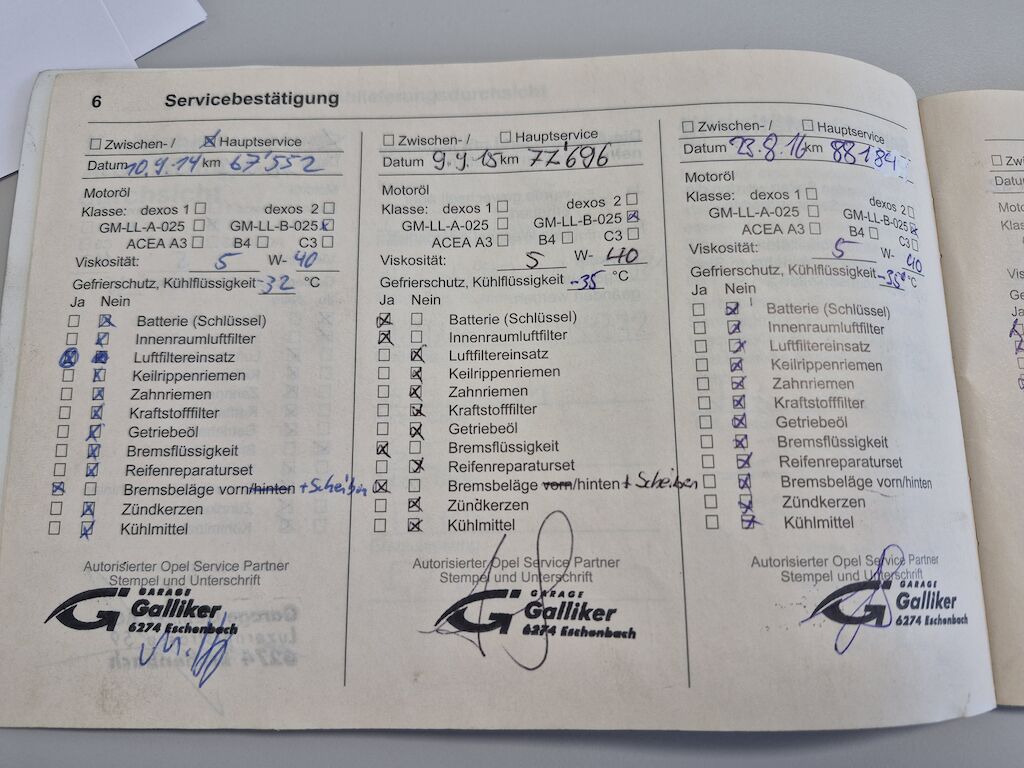 6 Servicebestätigung
☐ Zwischen- / ☒ Hauptservice
Datum 10.9.14 km 67'552
Motoröl
Klasse: dexos 1 ☐ dexos 2 ☐
GM-LL-A-025 ☐ GM-LL-B-025 ☒
ACEA A3 ☐ B4 ☐ C3 ☐
Viskosität: 5 W- 40
Gefrierschutz, Kühlflüssigkeit -32 °C
Ja Nein
☐ ☒ Batterie (Schlüssel)
☐ ☒ Innenraumluftfilter
☒ Luftfiltereinsatz
☐ ☒ Keilrippenriemen
☐ ☒ Zahnriemen
☐ ☒ Kraftstofffilter
☐ ☒ Getriebeöl
☐ ☒ Bremsflüssigkeit
☐ ☒ Reifenreparaturset
☒ ☐ Bremsbeläge vorn/hinten + Scheiben
☐ ☒ Zündkerzen
☐ ☒ Kühlmittel
Autorisierter Opel Service Partner
Stempel und Unterschrift
GARAGE
Galliker
6274 Eschenbach
☐ Zwischen- / ☐ Hauptservice
Datum 9.9.15 km 77'696
Motoröl
Klasse: dexos 1 ☐ dexos 2 ☐
GM-LL-A-025 ☐ GM-LL-B-025 ☒
ACEA A3 ☐ B4 ☐ C3 ☐
Viskosität: 5 W- 40
Gefrierschutz, Kühlflüssigkeit -35 °C
Ja Nein
☒ ☐ Batterie (Schlüssel)
☒ ☐ Innenraumluftfilter
☐ ☒ Luftfiltereinsatz
☐ ☒ Keilrippenriemen
☐ ☒ Zahnriemen
☐ ☒ Kraftstofffilter
☐ ☒ Getriebeöl
☒ ☐ Bremsflüssigkeit
☐ ☒ Reifenreparaturset
☒ ☐ Bremsbeläge vorn/hinten + Scheiben
☐ ☒ Zündkerzen
☐ ☒ Kühlmittel
Autorisierter Opel Service Partner
Stempel und Unterschrift
GARAGE
Galliker
6274 Eschenbach
☐ Zwischen- / ☐ Hauptservice
Datum 23.8.16 km 88184
Motoröl
Klasse: dexos 1 ☐ dexos 2 ☐
GM-LL-A-025 ☐ GM-LL-B-025 ☒
ACEA A3 ☐ B4 ☐ C3 ☐
Viskosität: 5 W- 40
Gefrierschutz, Kühlflüssigkeit -35° °C
Ja Nein
☐ ☒ Batterie (Schlüssel)
☐ ☒ Innenraumluftfilter
☐ ☒ Luftfiltereinsatz
☐ ☒ Keilrippenriemen
☐ ☒ Zahnriemen
☐ ☒ Kraftstofffilter
☐ ☒ Getriebeöl
☐ ☒ Bremsflüssigkeit
☐ ☒ Reifenreparaturset
☐ ☒ Bremsbeläge vorn/hinten
☐ ☒ Zündkerzen
☐ ☒ Kühlmittel
Autorisierter Opel Service Partner
Stempel und Unterschrift
GARAGE
Galliker
6274 Eschenbach